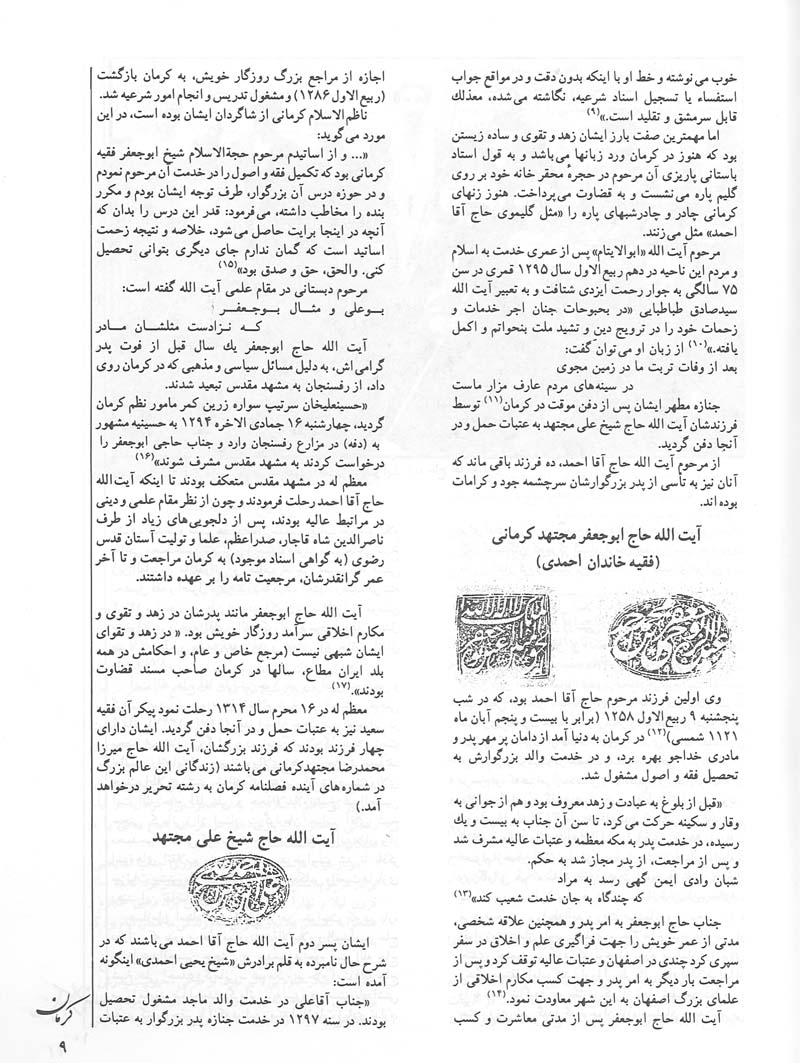 خوب می‌نوشته و خط او با اینکه بدون دقت و در مواقع جواب
استفساء یا تسجیل اسناد شرعیه، نگاشته می‌شده، معذلك
قابل سرمشق و تقلید است.»(۹)
اما مهمترین صفت بارز ایشان زهد و تقوی و ساده زیستن
بود که هنوز در کرمان ورد زبانها می‌باشد و به قول استاد
باستانی پاریزی آن مرحوم در حجرهٔ محقر خانه خود بر روی
گلیم پاره می‌نشست و به قضاوت می‌پرداخت. هنوز زنهای
کرمانی چادر و چادرشبهای پاره را «مثل گلیموی حاج آقا
احمد» مثل می‌زنند.
مرحوم آیت الله «ابوالایتام» پس از عمری خدمت به اسلام
و مردم این ناحیه در دهم ربیع الاول سال ۱۲۹۵ قمری در سن
۷۵ سالگی به جوار رحمت ایزدی شتافت و به تعبیر آیت الله
سیدصادق طباطبایی «در بحبوحات جنان اجر خدمات و
زحمات خود را در ترویج دین و تشید ملت بنحواتم و اکمل
یافته.»(۱۰) از زبان او می‌توان گفت:
بعد از وفات تربت ما در زمین مجوی
در سینه‌های مردم عارف مزار ماست
جنازه مطهر ایشان پس از دفن موقت در کرمان(۱۱) توسط
فرزندشان آیت الله حاج شیخ علی مجتهد به عتبات حمل و در
آنجا دفن گردید.
از مرحوم آیت الله حاج آقا احمد، ده فرزند باقی ماند که
آنان نیز به تأسی از پدر بزرگوارشان سرچشمه جود و کرامات
بوده اند.
آیت الله حاج ابوجعفر مجتهد کرمانی
(فقیه خاندان احمدی)
وی اولین فرزند مرحوم حاج آقا احمد بود، که در شب
پنجشنبه ۹ ربیع الاول ۱۲۵۸ (برابر با بیست و پنجم آبان ماه
۱۱۲۱ شمسی)(۱۲) در کرمان به دنیا آمد از دامان پر مهر پدر و
مادری خداجو بهره برد، و در خدمت والد بزرگوارش به
تحصیل فقه و اصول مشغول شد.
«قبل از بلوغ به عبادت و زهد معروف بود و هم از جوانی به
وقار و سکینه حرکت می‌کرد، تا سن آن جناب به بیست و یك
رسیده، در خدمت پدر به مکه معظمه و عتبات عالیه مشرف شد
و پس از مراجعت، از پدر مجاز شد به حکم.
شبان وادی ایمن گهی رسد به مراد
که چندگاه به جان خدمت شعیب کند»(۱۳)
جناب حاج ابوجعفر به امر پدر و همچنین علاقه شخصی،
مدتی از عمر خویش را جهت فراگیری علم و اخلاق در سفر
سپری کرد چندی در اصفهان و عتبات عالیه توقف کرد و پس از
مراجعت بار دیگر به امر پدر و جهت کسب مکارم اخلاقی از
علمای بزرگ اصفهان به این شهر معاودت نمود.(۱۴)
آیت الله حاج ابوجعفر پس از مدتی معاشرت و کسب
اجازه از مراجع بزرگ روزگار خویش، به کرمان بازگشت
(ربیع الاول ۱۲۸۶) و مشغول تدریس و انجام امور شرعیه شد.
ناظم‌الاسلام کرمانی از شاگردان ایشان بوده است، در این
مورد می‌گوید:
«... و از اساتیدم مرحوم حجةالاسلام شیخ ابوجعفر فقیه
کرمانی بود که تکمیل فقه و اصول را در خدمت آن مرحوم نمودم
و در حوزه درس آن بزرگوار، طرف توجه ایشان بودم و مکرر
بنده را مخاطب داشته، می‌فرمود: قدر این درس را بدان که
آنچه در اینجا برایت حاصل می‌شود، خلاصه و نتیجه زحمت
اساتید است که گمان ندارم جای دیگری بتوانی تحصیل
کنی. والحق، حق و صدق بود»(۱۵)
مرحوم دبستانی در مقام علمی آیت الله گفته است:
بوعلی و مثال بوجعفر
که نزادست مثلشان مادر
آیت الله حاج ابوجعفر یك سال قبل از فوت پدر
گرامی‌اش، به دلیل مسائل سیاسی و مذهبی که در کرمان روی
داد، از رفسنجان به مشهد مقدس تبعید شدند.
«حسینعلیخان سرتیپ سواره زرین کمر مامور نظم کرمان
گردید، چهارشنبه ۱۶ جمادی الاخره ۱۲۹۴ به حسینیه مشهور
به (دفه) در مزارع رفسنجان وارد و جناب حاجی ابوجعفر را
درخواست کردند به مشهد مقدس مشرف شوند»(۱۶)
معظم له در مشهد مقدس متعکف بودند تا اینکه آیت‌الله
حاج آقا احمد رحلت فرمودند و چون از نظر مقام علمی و دینی
در مراتبط عالیه بودند، پس از دلجویی‌های زیاد از طرف
ناصرالدین شاه قاجار، صدراعظم، علما و تولیت آستان قدس
رضوی (به گواهی اسناد موجود) به کرمان مراجعت و تا آخر
عمر گرانقدرشان، مرجعیت تامه را بر عهده داشتند.
آیت الله حاج ابوجعفر مانند پدرشان در زهد و تقوی و
مکارم اخلاقی سرآمد روزگار خویش بود. « در زهد و تقوای
ایشان شبهی نیست (مرجع خاص و عام، و احکامش در همه
بلد ایران مطاع، سالها در کرمان صاحب مسند قضاوت
بودند».(۱۷)
معظم له در ۱۶ محرم سال ۱۳۱۴ رحلت نمود پیکر آن فقیه
سعید نیز به عتبات حمل و در آنجا دفن گردید. ایشان دارای
چهار فرزند بودند که فرزند بزرگشان، آیت الله حاج میرزا
محمدرضا مجتهدکرمانی می‌باشند (زندگانی این عالم بزرگ
در شماره‌های آینده فصلنامه کرمان به رشته تحریر درخواهد
آمد.)
آیت الله حاج شیخ علی مجتهد
ایشان پسر دوم آیت الله حاج آقا احمد می‌باشند که در
شرح حال نامبرده به قلم برادرش «شیخ یحیی احمدی» اینگونه
آمده است:
«جناب آقاعلی در خدمت والد ماجد مشغول تحصیل
بودند. در سنه ۱۲۹۷ در خدمت جنازه پدر بزرگوار به عتبات
کرمان
۹